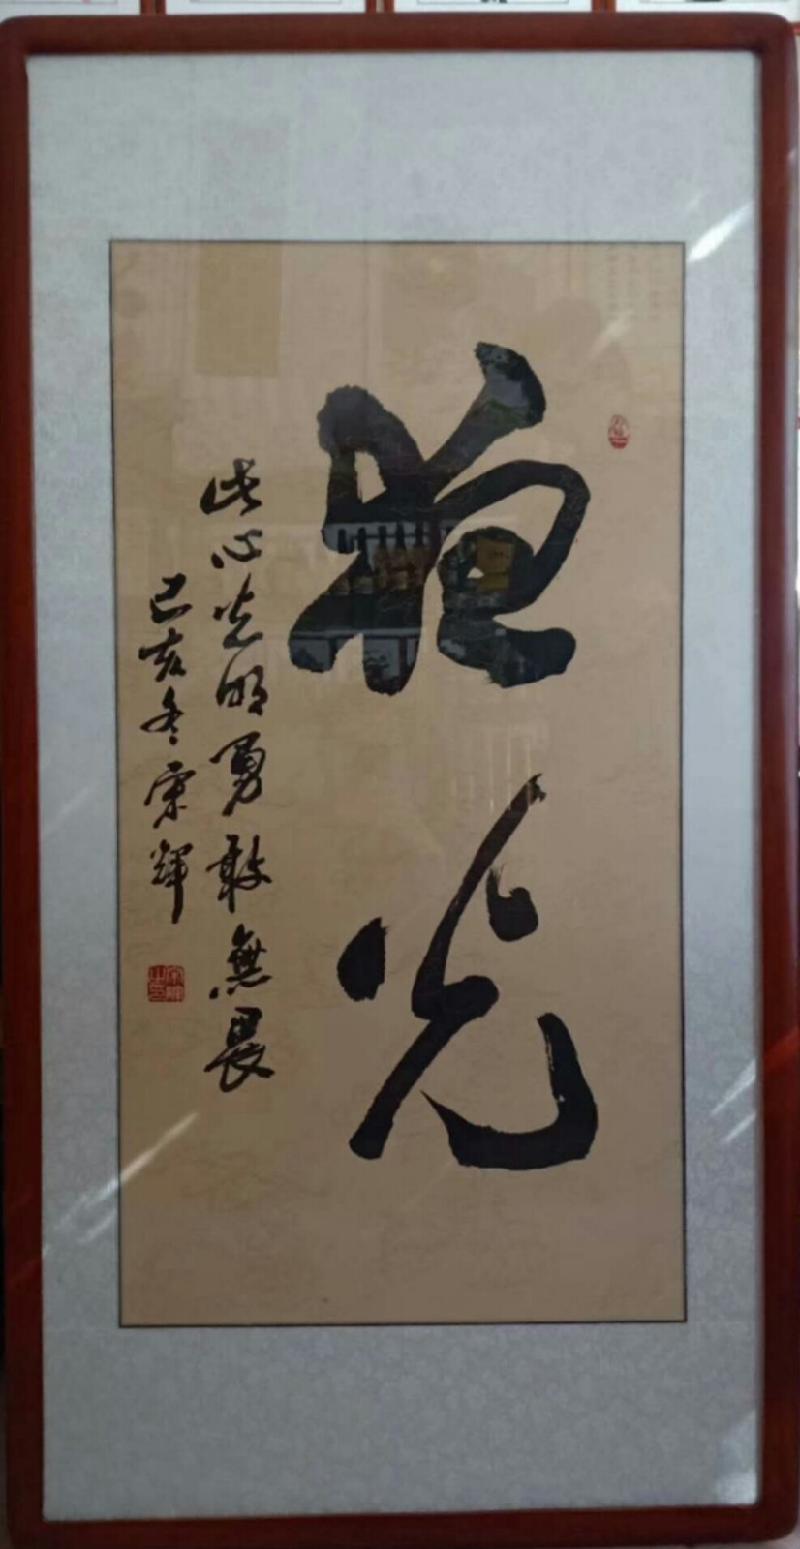 光
此心光明勇敢無畏
己亥冬宋輝